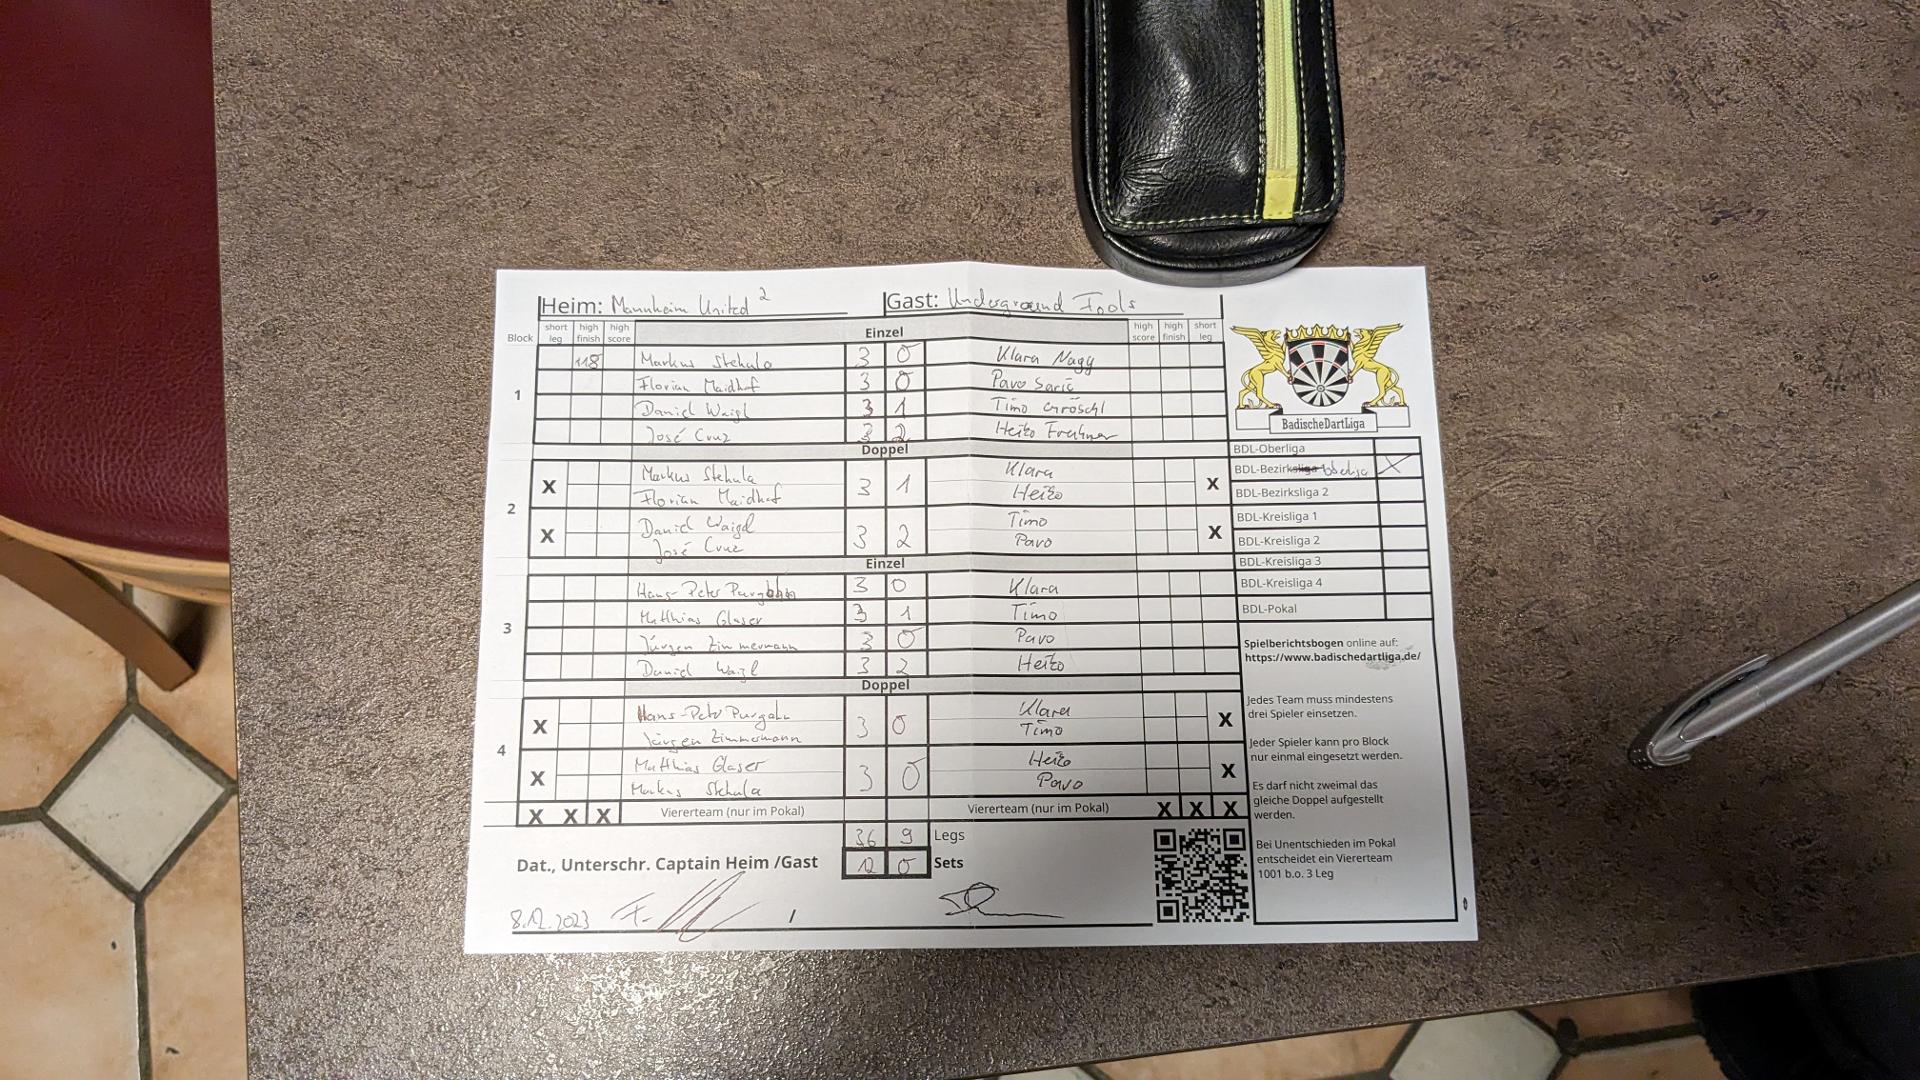 Heim: Mannheim United 2 Gast: Underground Fools
Block short leg high finish high score Einzel high score high finish short leg
1
118 Markus Stehula 3 0 Klara Nagy
Florian Maidhof 3 0 Pavo Sarić
Daniel Waigl 3 1 Timo Gröschl
José Cruz 3 2 Heiko
Doppel
2
X Markus Stehula 3 1 Klara X
Florian Maidhof Heiko
X Daniel Waigl 3 2 Timo X
José Cruz Pavo
Einzel
3
Hans-Peter 3 0 Klara
Matthias Glaser 3 1 Timo
Jürgen Zimmermann 3 0 Pavo
Daniel Waigl 3 2 Heiko
Doppel
4
X Hans-Peter 3 0 Klara X
Jürgen Zimmermann Timo
X Matthias Glaser 3 0 Heiko X
Markus Stehula Pavo
X X X Viererteam (nur im Pokal) Viererteam (nur im Pokal) X X X
36 9 Legs
Dat., Unterschr. Captain Heim /Gast 12 0 Sets
8.12.2023 /
BadischeDartLiga
BDL-Oberliga
BDL-Bezirksliga X
BDL-Bezirksliga 2
BDL-Kreisliga 1
BDL-Kreisliga 2
BDL-Kreisliga 3
BDL-Kreisliga 4
BDL-Pokal
Spielberichtsbogen online auf:
https://www.badischedartliga.de/
Jedes Team muss mindestens
drei Spieler einsetzen.
Jeder Spieler kann pro Block
nur einmal eingesetzt werden.
Es darf nicht zweimal das
gleiche Doppel aufgestellt
werden.
Bei Unentschieden im Pokal
entscheidet ein Viererteam
1001 b.o. 3 Leg